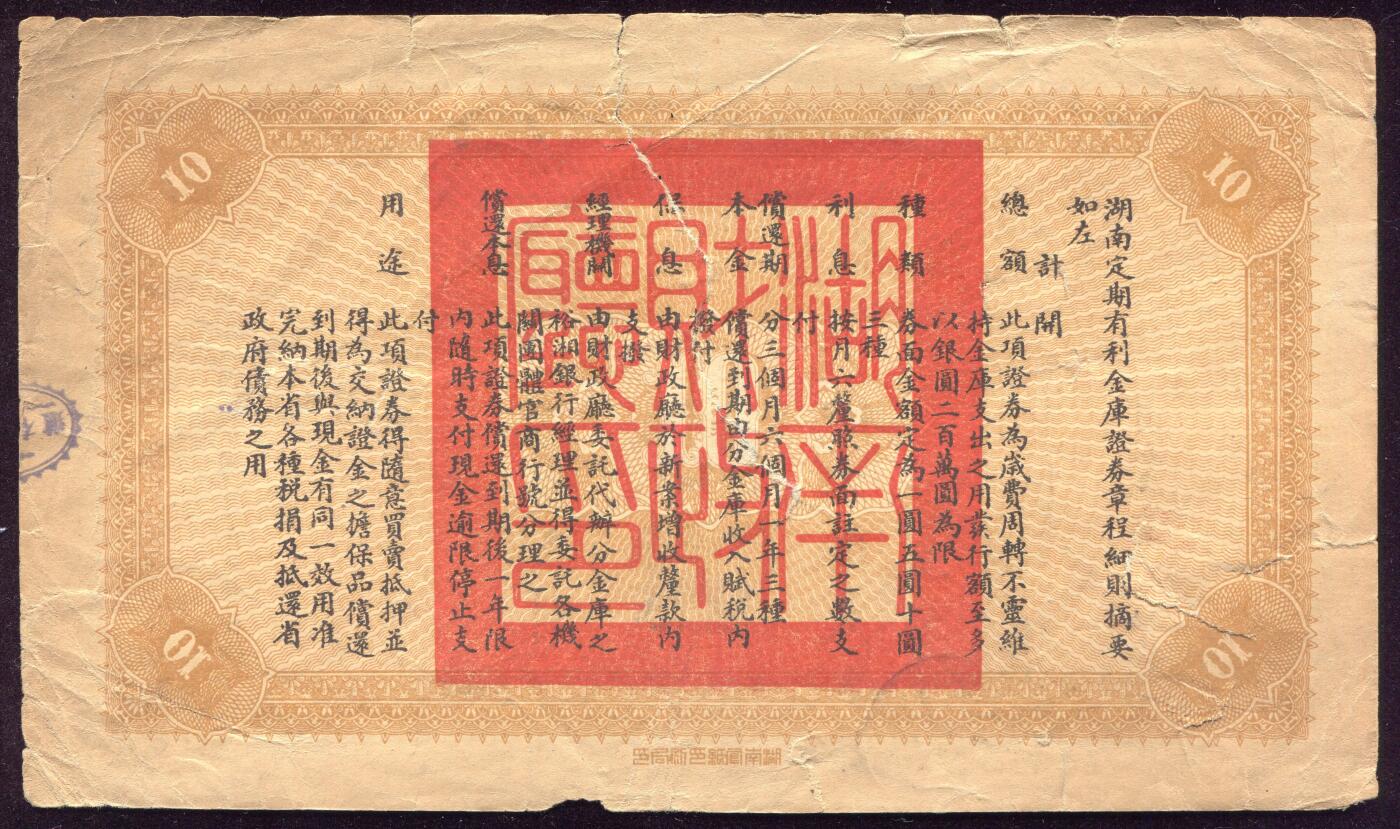 湖南定期有利金庫證券章程細則摘要
如左
計開
總額 此項證券為歲費周轉不靈維
持金庫支出之用發行額至多
以銀圓二百萬圓為限
種類 券面金額定為一圓五圓十圓
三種
利息 按月六釐照券面註定之數支
付
償還期 分三個月六個月一年三種
本金 償還到期由分金庫收入賦稅內
撥付
保息 由財政廳於新案增收釐款內
支撥
經理機關 由財政廳委託代辦分金庫之
裕湘銀行經理並得委託各機
關團體官商行號分理之
償還本息 此項證券償還到期後一年限
內隨時支付現金逾限停止支
付
用途 此項證券得隨意買賣抵押並
得為交納證金之擔保品償還
到期後與現金有同一效用准
完納本省各種稅捐及抵還省
政府債務之用
10
10
10
10
湖南財政廳印
湖南官紙印刷局印